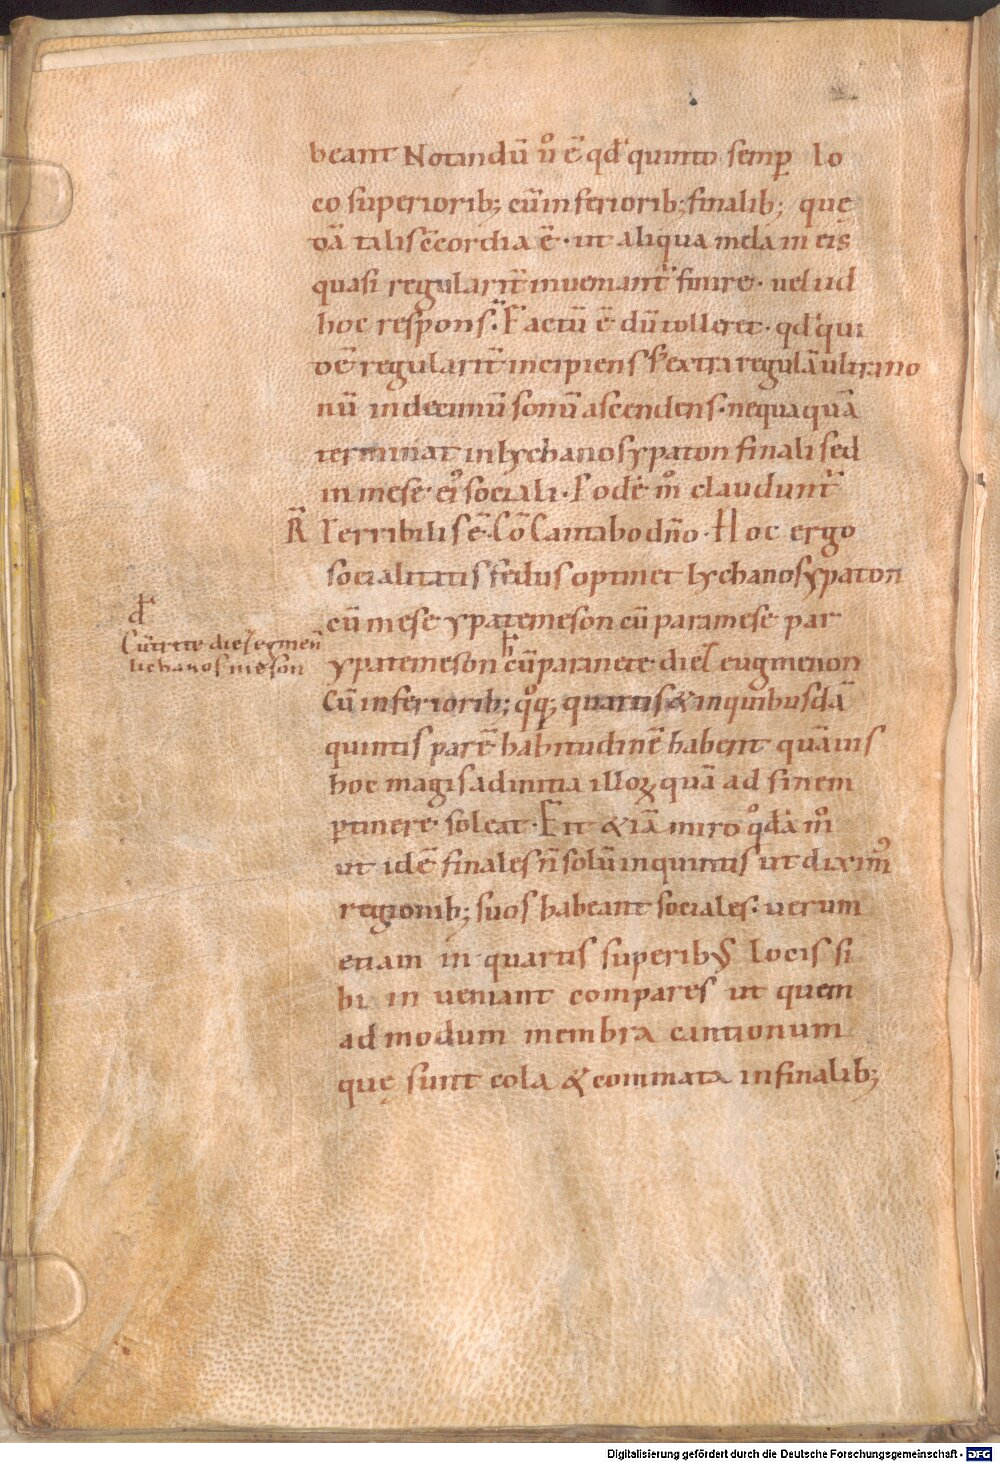 beant Notandū ū ē qđ quinto semꝑ lo
co superiorib; cū inferiorib; finalib; que
dā talis ċcordia ē · ut aliqua mela in eis
quasi regularit̄ inveniant̄ finire · velud
hoc respons · Factū ē dū tolleret · qđ qui
dē regularit̄ incipiens s; extra regulā ultra no
nū in decimū sonū ascendens · nequaquā
terminat in lychanos ypaton finali sed
in mese ei' sociali · Eodē m° claudunt̄
R̄ Terribilis ē · Cō Cantabo dn̄o · Hoc ergo
socialitatis fedus optinet lychanos ypaton
cū mese ypatemeson cū paramese par
ypatemeson cū paranete diel eugmenon
Cū inferiorib; q°q; quartis & in quibusdā
quintis parē habitudinē habent quāvis
hoc magis ad initia illoꝝ quā ad finem
ꝑtinere soleat · Fit & iā miro q°dā m°
ut idē finales n̄ solū in quintis ut dixim'
regionib; suos habeant sociales · verum
etiam in quartis superibus locis si
bi in veniant compares ut quem
ad modum membra cantionum
que sunt cola & commata in finalib;
Cū trite diel eȝmen̄
lichanos meson
Digitalisierung gefördert durch die Deutsche Forschungsgemeinschaft - DFG